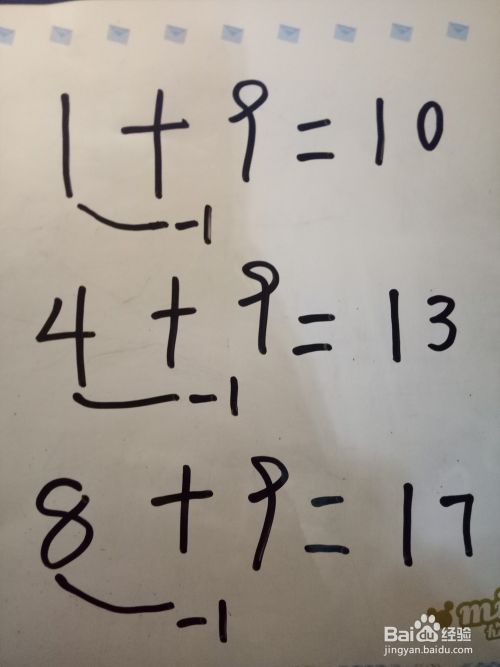 1 + 9 = 10
-1
4 + 9 = 13
-1
8 + 9 = 17
-1
Bai 经验
jingyan.baidu.com